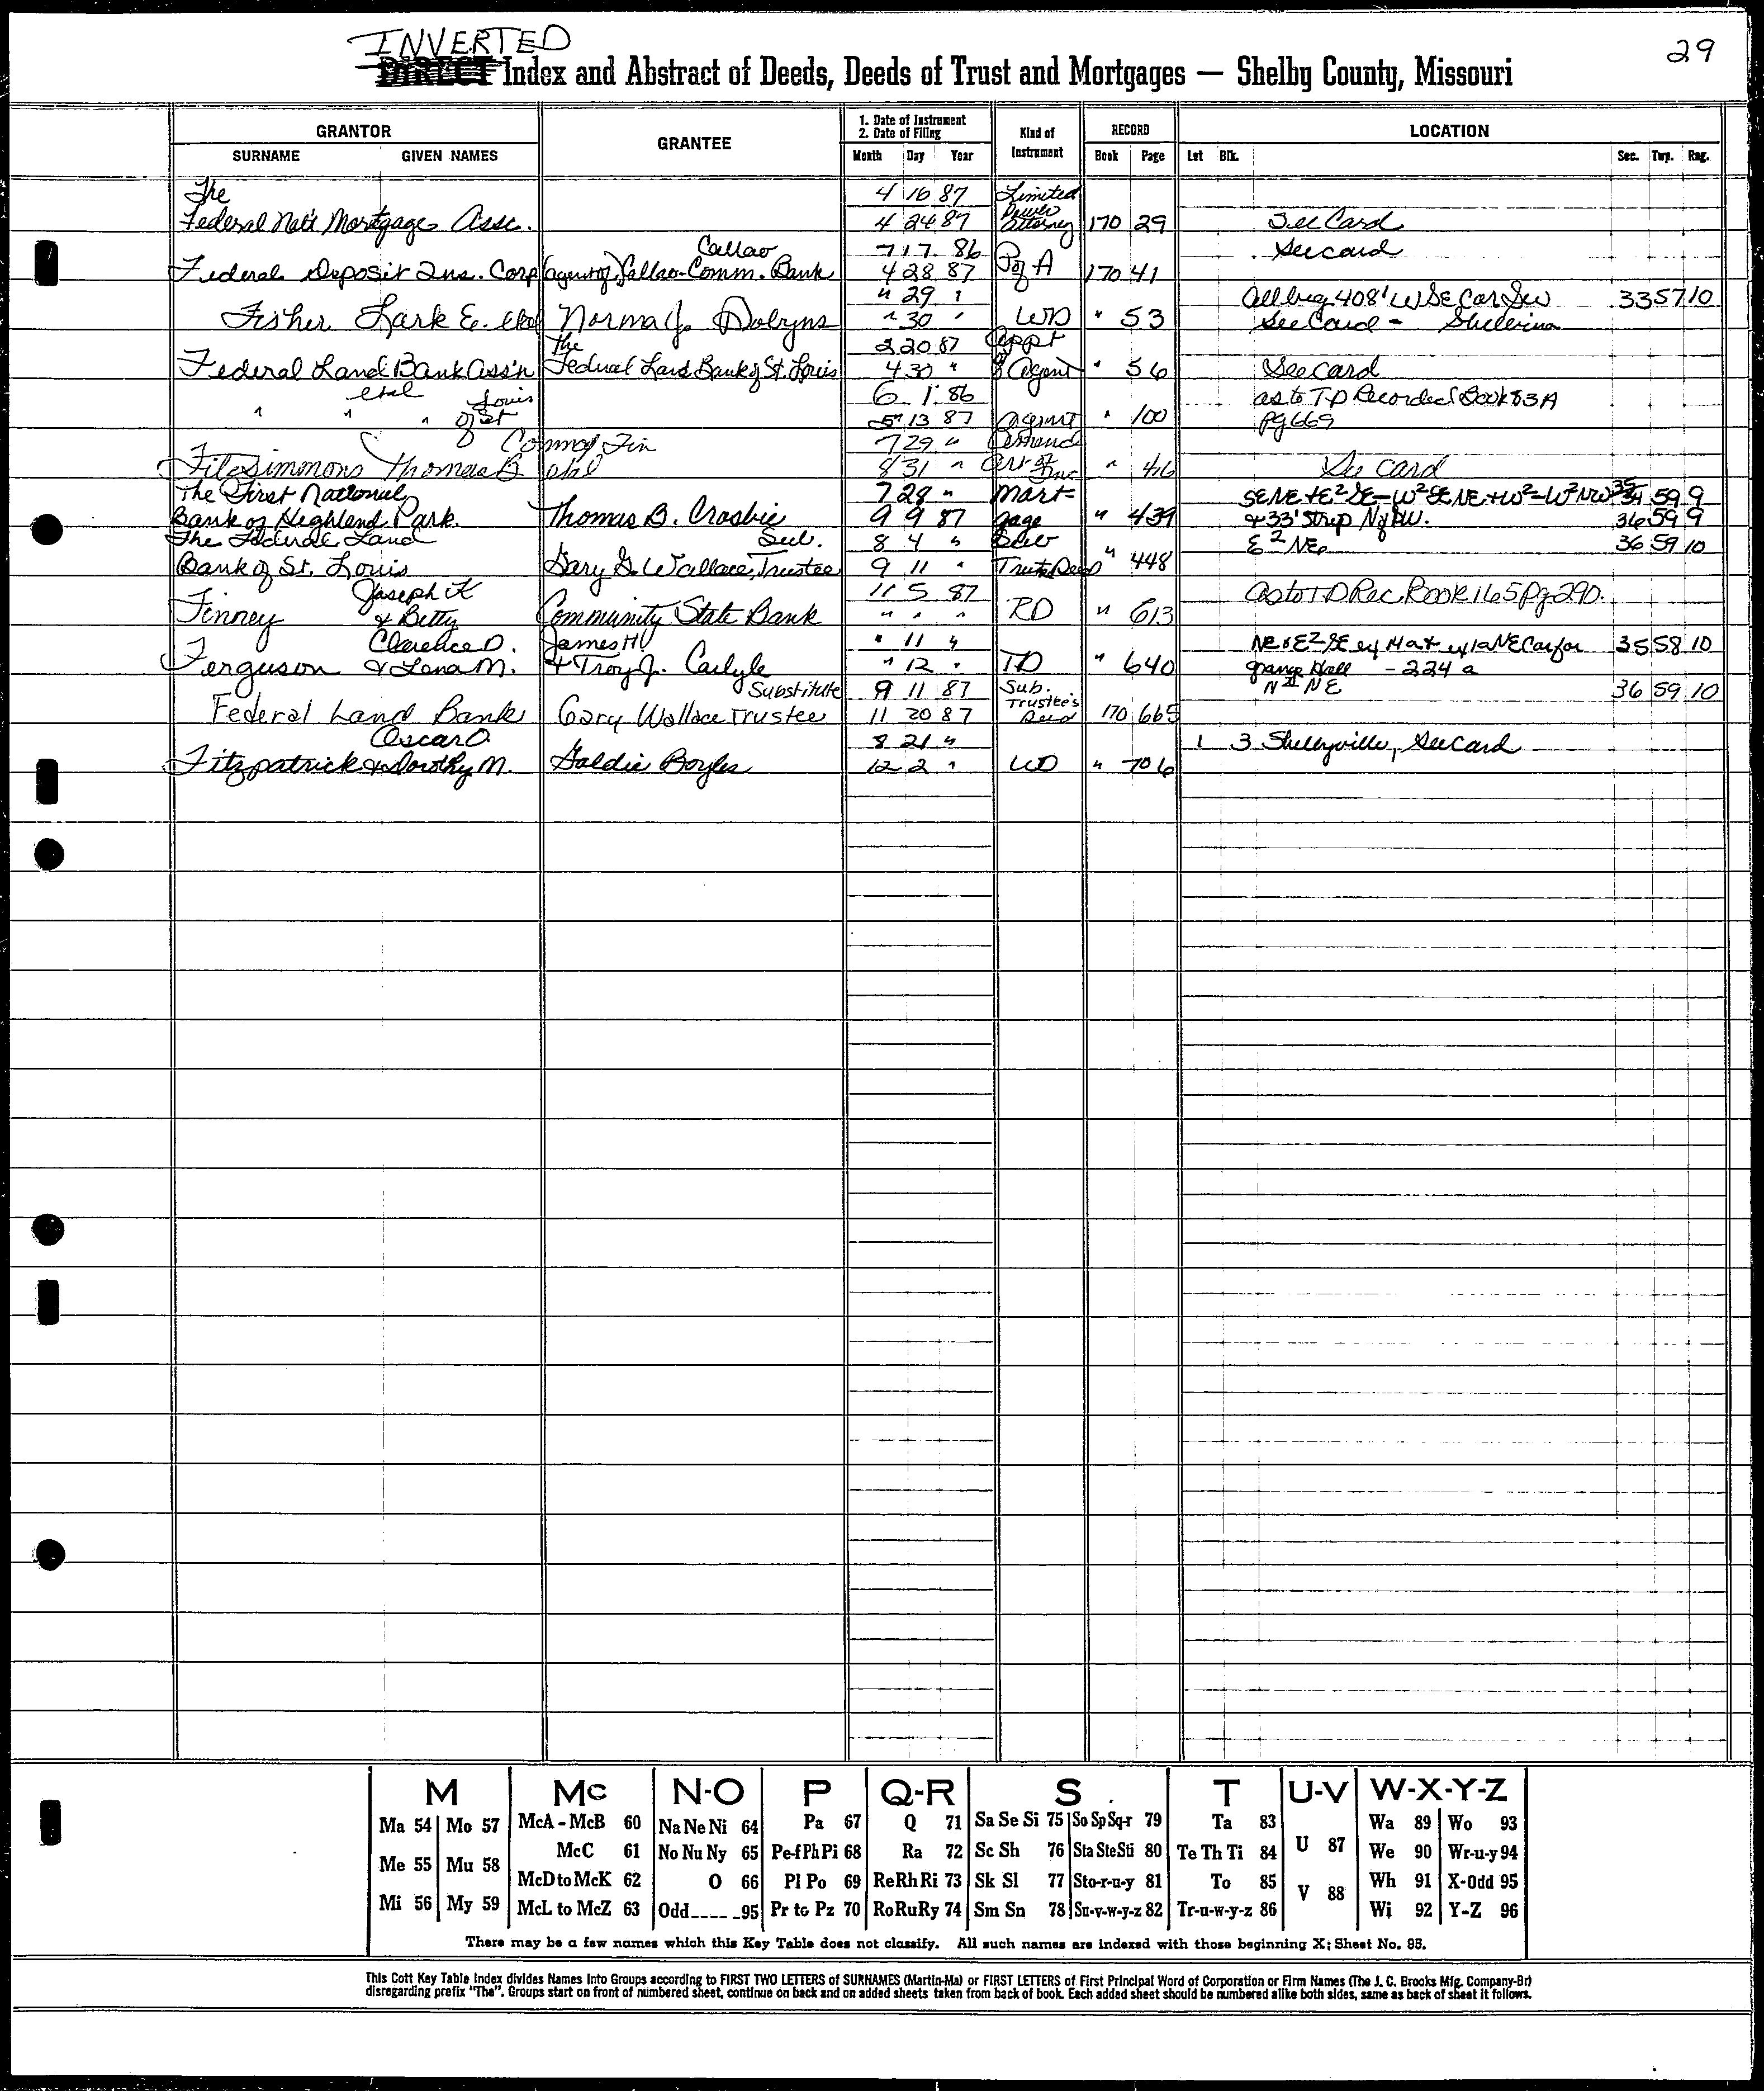 INVERTED
29
DIRECT Index and Abstract of Deeds, Deeds of Trust and Mortgages — Shelby County, Missouri
GRANTOR GRANTEE 1. Date of Instrument 2. Date of Filing Kind of Instrument RECORD LOCATION
SURNAME GIVEN NAMES Month Day Year Book Page Lot Blk. Sec. Twp. Rng.
The 4 16 87 Limited
Federal Nat'l Mortgage Assc. 4 24 87 Power Attorney 170 29 See Card
Callao 7 17 86 See card
Federal Deposit Ins. Corp (agent of) Callao-Comm. Bank 4 28 87 P of A 170 41
" 29 " All beg 408' W SE Cor SW 33 57 10
Fisher Lark E. etal Norma J. Dobyns " 30 " WD " 53 See Card - Shelbina
The 2 20 87 Appt
Federal Land Bank Ass'n Federal Land Bank of St. Louis 4 30 " of Agent " 56 See Card
etal Louis 6 1 86 as to TD Recorded Book 83A
" " " of St 5 13 87 " 100 pg 669
Comm of Fin 7 29 " Amend
Fitzsimmons Thomas B etal 8 31 " Art of Inc " 416 See Card
The First National 7 28 " Mort- SENE+E²SE-W²SENE+W²-W²NW 35 34 59 9
Bank of Highland Park. Thomas B. Crosbie 9 9 87 gage " 439 +33' Strip 36 59 9
The Federal Land Sub. 8 4 " E²NE 36 59 10
Bank of St. Louis Gary G. Wallace, Trustee 9 11 " Trust Deed " 448
Joseph K 11 5 87 as to TD Rec Book 165 Pg 290.
Finney & Betty Community State Bank " " " RD " 613
Clarence D. James H " 11 " NE & E²SE ex 35 58 10
Ferguson & Lena M. & Troy J. Carlyle " 12 " TD " 640 Grange Hall - 224 a
Substitute 9 11 87 Sub. NE 36 59 10
Federal Land Bank Gary Wallace Trustee 11 20 87 Trustee's Deed 170 665
Oscar O. 8 21 " 1 3 Shelbyville, See Card
Fitzpatrick & Dorothy M. Goldie Boyles 12 2 " WD " 706
M Mc N-O P Q-R S T U-V W-X-Y-Z
Ma 54 Mo 57 McA - McB 60 Na Ne Ni 64 Pa 67 Q 71 Sa Se Si 75 So Sp Sq-r 79 Ta 83 U 87 Wa 89 Wo 93
Me 55 Mu 58 McC 61 No Nu Ny 65 Pe-f Ph Pi 68 Ra 72 Sc Sh 76 Sta Ste Sti 80 Te Th Ti 84 We 90 Wr-u-y 94
McD to McK 62 O 66 Pl Po 69 Re Rh Ri 73 Sk Sl 77 Sto-r-u-y 81 To 85 V 88 Wh 91 X-Odd 95
Mi 56 My 59 McL to McZ 63 Odd_____95 Pr to Pz 70 Ro Ru Ry 74 Sm Sn 78 Su-v-w-y-z 82 Tr-u-w-y-z 86 Wi 92 Y-Z 96
There may be a few names which this Key Table does not classify. All such names are indexed with those beginning X; Sheet No. 95.
This Cott Key Table Index divides Names Into Groups according to FIRST TWO LETTERS of SURNAMES (Martin-Ma) or FIRST LETTERS of First Principal Word of Corporation or Firm Names (The J. C. Brooks Mfg. Company-Br)
disregarding prefix "The". Groups start on front of numbered sheet, continue on back and on added sheets taken from back of book. Each added sheet should be numbered alike both sides, same as back of sheet it follows.